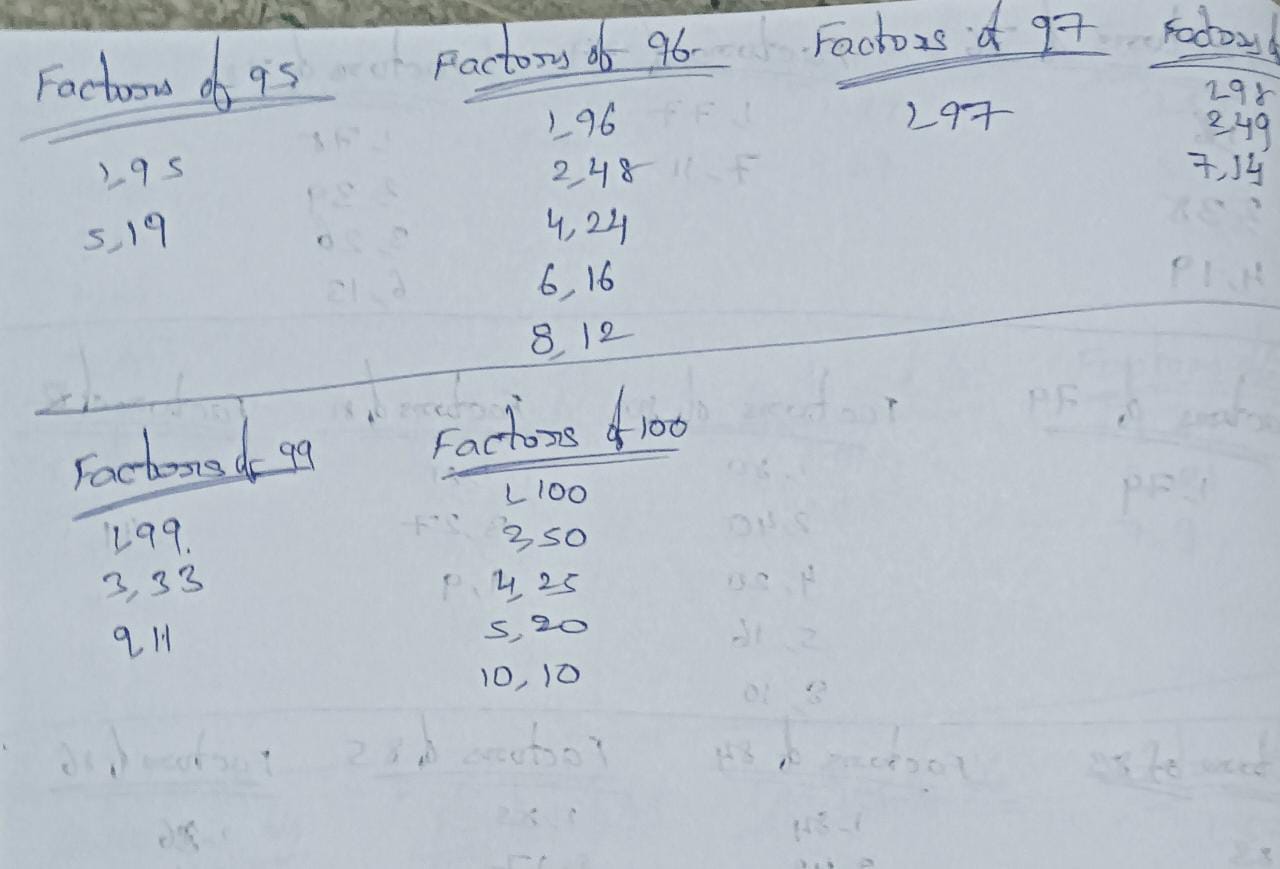 Factors of 95
1,95
5,19
Factors of 96
1,96
2,48
4,24
6,16
8,12
Factors of 97
1,97
Factors
1,98
2,49
7,14
Factors of 99
1,99
3,33
9,11
Factors of 100
1,100
2,50
4,25
5,20
10,10